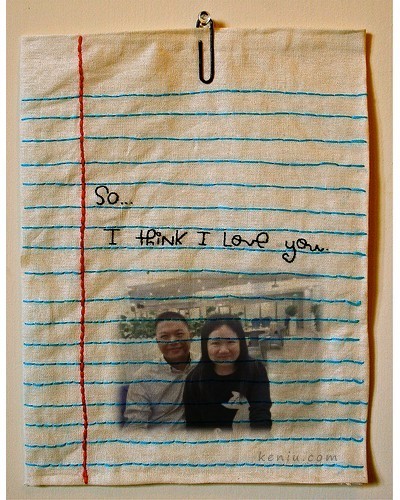 So...
I think I Love you.
keniu.com